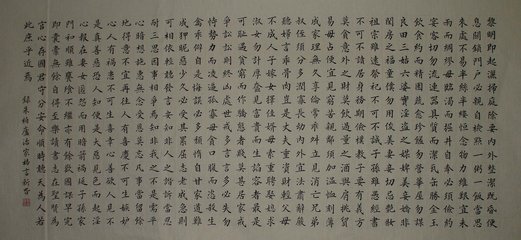 黎明即起灑掃庭除要內外整潔既昏便
息關鎖門戶必親自檢點一粥一飯當思
來處不易半絲半縷恒念物力維艱宜未
雨而綢繆毋臨渴而掘井自奉必須儉約
宴客切勿流連器具質而潔瓦缶勝金玉
飲食約而精園蔬愈珍饈勿營華屋勿謀
良田三姑六婆實淫盜之媒婢美妾嬌非
閨房之福童僕勿用俊美妻妾切忌艷妝
祖宗雖遠祭祀不可不誠子孫雖愚經書
不可不讀居身務期儉樸教子要有義方
莫貪意外之財莫飲過量之酒與肩挑貿
易毋占便宜見窮苦親鄰須加溫恤刻薄
成家理無久享倫常乖舛立見消亡兄弟
叔侄須分多潤寡長幼內外宜法肅辭嚴
聽婦言乖骨肉豈是丈夫重資財輕父母
不成人子嫁女擇佳婿毋索重聘娶媳求
淑女勿計厚奩見富貴而生諂容者最
可恥遇貧窮而作驕態者賤莫甚居家戒
爭訟訟則終凶處世戒多言言多必失勿
恃勢力而凌逼孤寡毋貪口腹而恣殺
禽乖僻自是悔誤必多頹惰自甘家道難
成狎昵惡少久必受其累屈志老成急則
可相依輕聽發言安知非人之譖訴當忍
耐三思因事相爭焉知非我之不是需平
心暗想施惠無念受恩莫忘凡事當留餘
地得意不宜再往人有喜慶不可生妒嫉
心人有禍患不可生喜幸心善欲人見不
是真善惡恐人知便是大惡見色而起淫
心報在妻女匿怨而用暗箭禍延子孫家
門和順雖饔飧不繼亦有餘歡國課早完
即囊橐無餘自得至樂讀書志在聖賢為
官心存君國守分安命順時聽天為人若
此庶乎近焉 錄朱柏廬治家格言